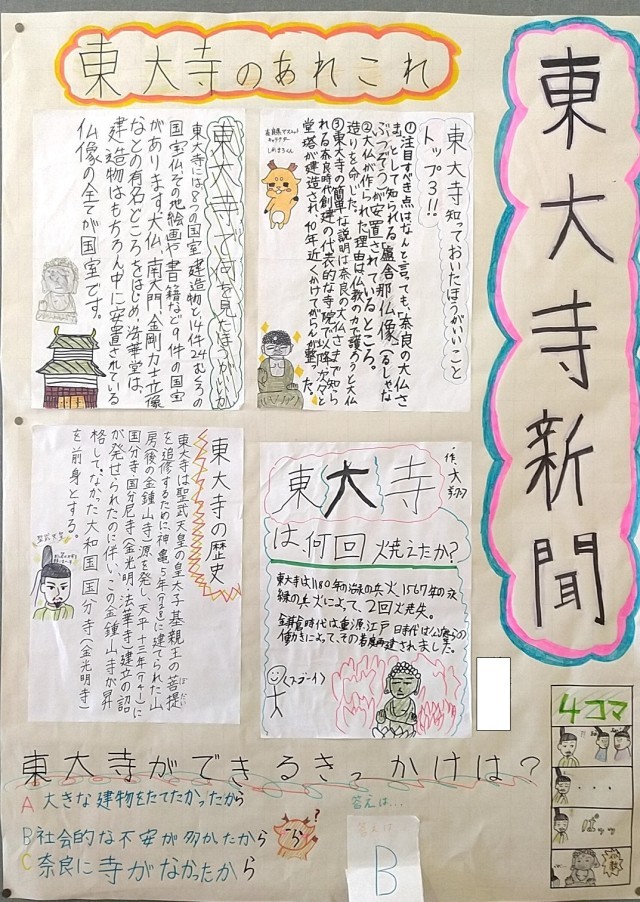 東大寺新聞
東大寺のあれこれ
東大寺知っておいたほうがいいこと
トップ3!!
①注目すべき点はなんと言っても、「奈良の大仏さ
ま」として知られる「盧舎那仏像」(るしゃな
ぶつぞう)が安置されているところ。
②大仏が作られた理由は仏教の力で護ろうと大仏
造りを命じた。
③東大寺の簡単な説明は奈良の大仏さまで知ら
れる奈良時代創建の代表的な寺院で以降
堂塔が建造され、40年近くかけてがらんが整った。
奈良県マスコット
キャラクター
しかまろくん
東大寺で何を見たほうがいいか
東大寺には8つの国宝建造物と14件24
国宝仏その他絵画や書籍など9件の国宝
があります。大仏、南大門、金剛力士立像
などの有名どころをはじめ、法華堂は、
建造物はもちろん中に安置されている
仏像の全てが国宝です。
作、大
東大寺
は何回焼えたか?
東大寺は1180年の治承の兵火、1567年の永
禄の兵火によって、2回焼失。
鎌倉時代は重源江戸時代は公慶らの
働きによって、その都度再建されました。
スゴーイ
東大寺の歴史
東大寺は聖武天皇の皇太子基親王の菩提
ぼだい
を追修するために神亀5年(728)に建てられた山
房後の金鍾山寺)源を発し、天平十三年(741)に
国分寺国分尼寺(金光明、法華寺)建立の詔
が発せられたのに伴い、この金鍾山寺が昇
格して、なかった大和国国分寺(金光明寺)
を前身とする。
聖武天皇
4コマ
!!
・・・
ぱッッ
東大寺ができるきっかけは?
A 大きな建物をたてたかったから
B 社会的な不安が多かたから
C 奈良に寺がなかったから
?
答えは…
答えは
B